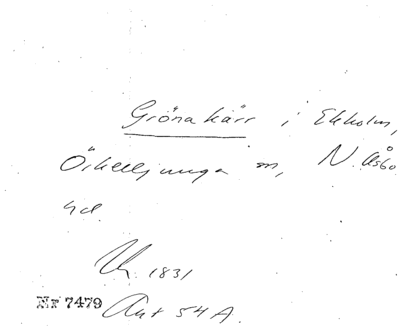 Gröna kärr i Ekholm,
Örkelljunga sn, N. Åsbo
hd.
Uk. 1831
Nr 7479 Akt 54 A.